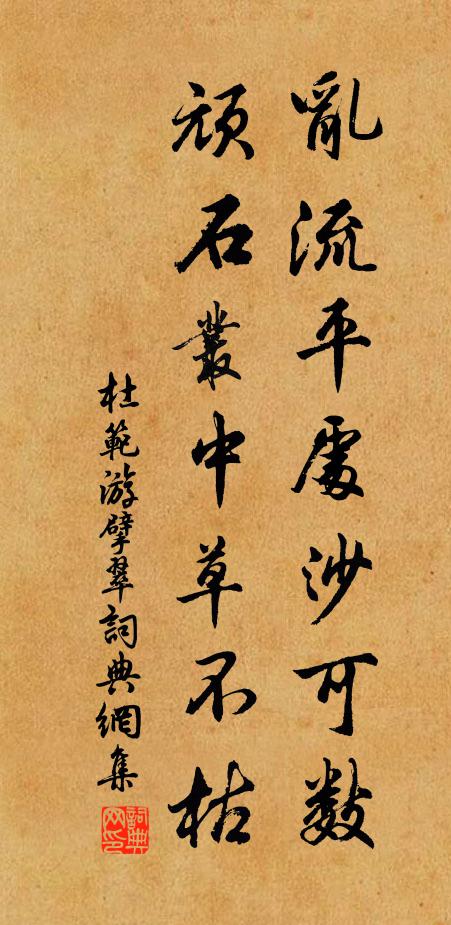 亂流平處沙可數
頑石叢中草不枯
杜範游擘翠詞典網集
詞典网印